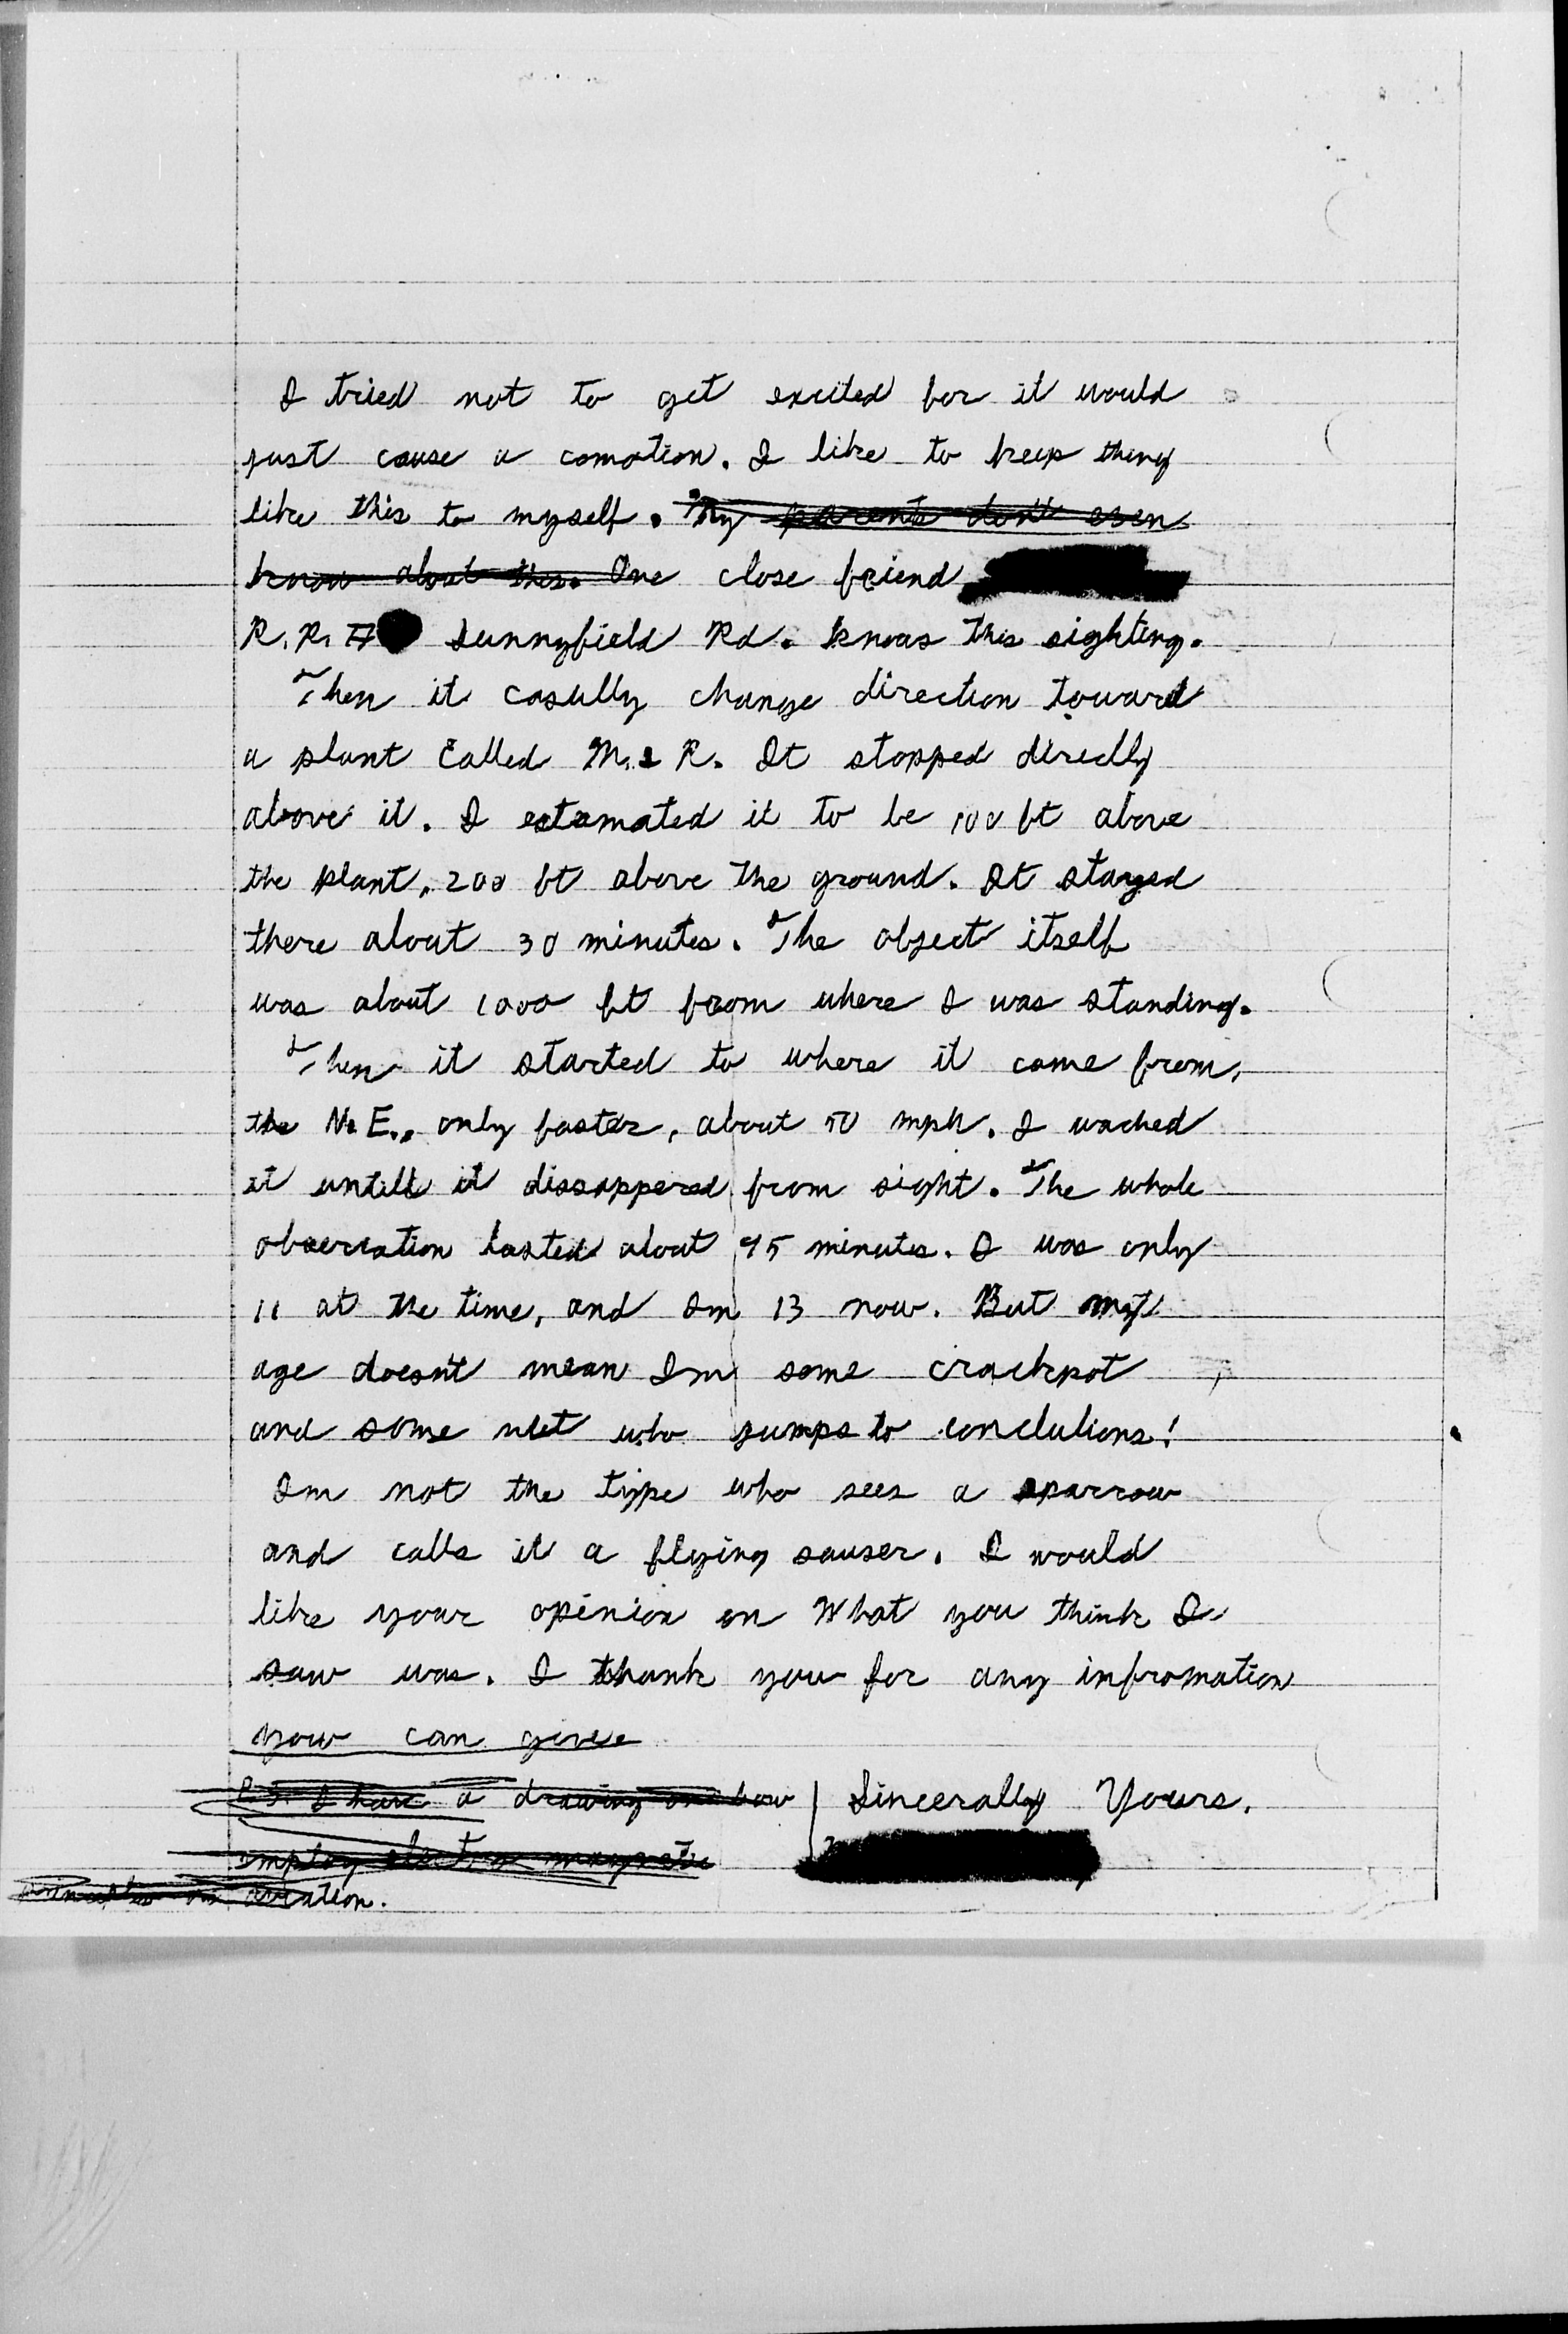 I tried not to get excited for it would
just cause a comotion. I like to keep thing
like this to myself. My parents don't even
know about this. One close friend
R.R. # Sunnyfield Rd. knows this sighting.
Then it casully change direction toward
a plant called M. & R. It stopped direclly
above it. I estamated it to be 100 ft above
the plant, 200 ft above the ground. It stayed
there about 30 minutes. The object itself
was about 1000 ft from where I was standing.
Then it started to where it came from,
the N.E., only faster, about 50 mph. I wached
it untill it dissappered from sight. The whole
observation lasted about 45 minutes. I was only
11 at the time, and Im 13 now. But my
age doesn't mean Im some crackpot
and some nut who jumps to conclutions!
Im not the type who sees a sparrow
and calls it a flying sauser. I would
like your opinion on what you think I
saw was. I thank you for any infromation
you can give
P.S. I have a drawing on how
Sincerally Yours,
employ electro magnetic